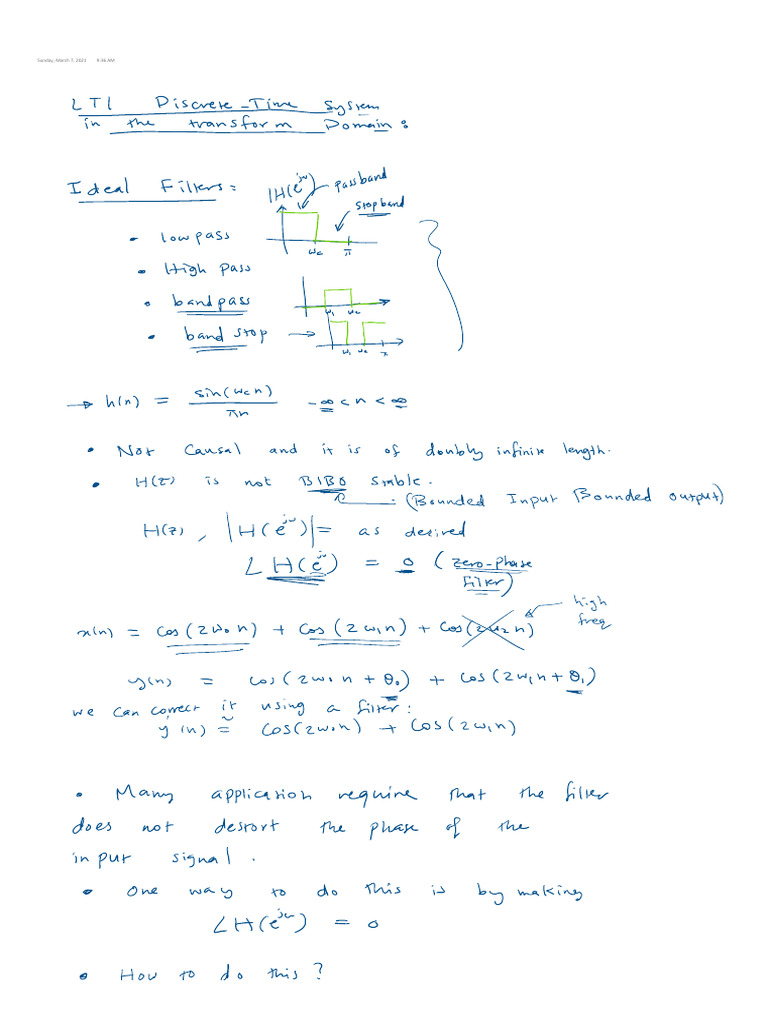 Sunday, March 7, 2021 9:36 AM
LTI Discrete-Time System
in the transform Domain:
Ideal Filters:
|H(e^jω)
passband
stopband
• low pass
ωc π
• High pass
• band pass
ω1 ω2
• band stop →
ω1 ω2 π
→ h(n) = sin(ωc n) / πn -∞ < n < ∞
• Not Causal and it is of doubly infinite length.
• H(z) is not BIBO stable.
: (Bounded Input Bounded output)
H(z), |H(e^jω)| = as desired
∠H(e^jω) = 0 (zero-phase
filter)
high
freq
x(n) = cos(2ω0 n) + cos(2ω1 n) + cos(2ω2 n)
y(n) = cos(2ω0 n + θ0) + cos(2ω1 n + θ1)
we can correct it using a filter:
ý(n) ≃ cos(2ω0 n) + cos(2ω1 n)
• Many application require that the filter
does not destort the phase of the
input signal.
• One way to do this is by making
∠H(e^jω) = 0
• How to do this?